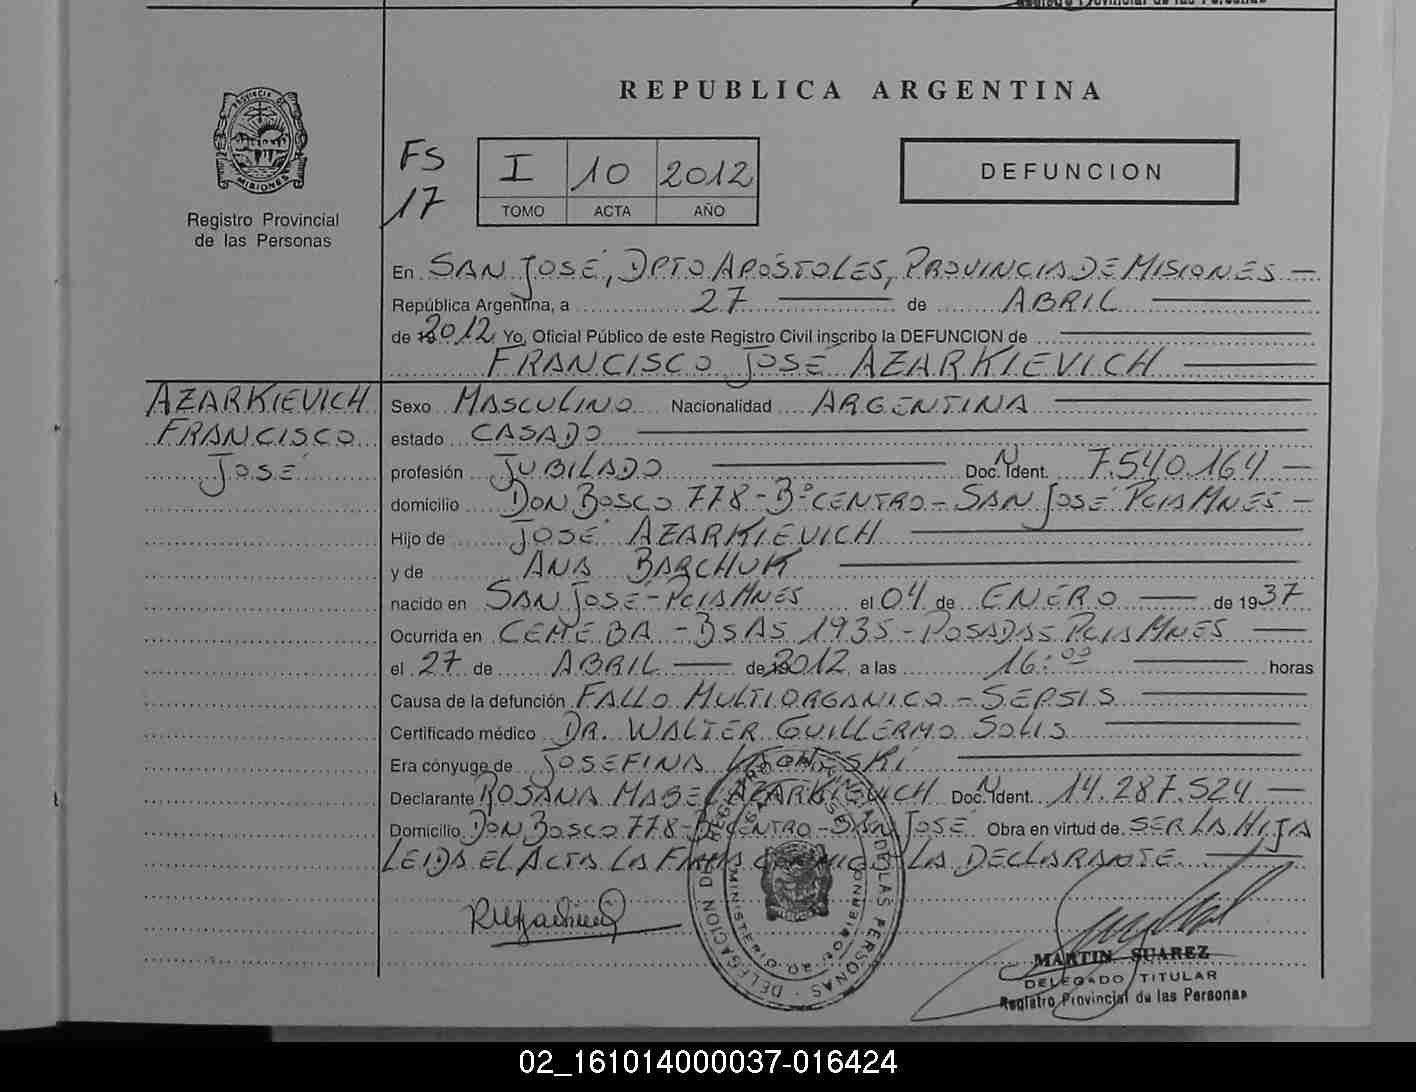 Registro Provincial de las Personas
REPUBLICA ARGENTINA
PROVINCIA DE
MISIONES
Registro Provincial
de las Personas
FS
17
I 10 2012
TOMO ACTA AÑO
DEFUNCION
En SAN JOSÉ, DPTO APÓSTOLES, PROVINCIA DE MISIONES
República Argentina, a 27 de ABRIL
de 2012 Yo, Oficial Público de este Registro Civil inscribo la DEFUNCION de
FRANCISCO JOSÉ AZARKIEVICH
AZARKIEVICH
FRANCISCO
JOSÉ
Sexo MASCULINO Nacionalidad ARGENTINA
estado CASADO
profesión JUBILADO Doc. N Ident. 7.540.164
domicilio DON BOSCO 778 - Bº CENTRO - SAN JOSÉ PCIA MNES
Hijo de JOSÉ AZARKIEVICH
y de ANA BARCHUK
nacido en SAN JOSÉ - PCIA MNES el 04 de ENERO de 1937
Ocurrida en CEMEBA - BSAS 1935 - POSADAS PCIA MNES
el 27 de ABRIL de 2012 a las 16:00 horas
Causa de la defunción FALLO MULTIORGANICO - SEPSIS
Certificado médico DR. WALTER GUILLERMO SOLIS
Era cónyuge de JOSEFINA
Declarante ROSANA MABEL AZARKIEVICH Doc. N Ident. 14.287.524
Domicilio DON BOSCO 778 - Bº CENTRO - SAN JOSÉ Obra en virtud de SER LA HIJA
LEIDA EL ACTA LA FIRMA CONMIGO LA DECLARANTE
DELEGACION DEL REGISTRO PROVINCIAL DE LAS PERSONAS
SAN JOSE
MINISTERIO DE GOBIERNO
MARTIN SUAREZ
DELEGADO TITULAR
Registro Provincial de las Personas
02_161014000037-016424